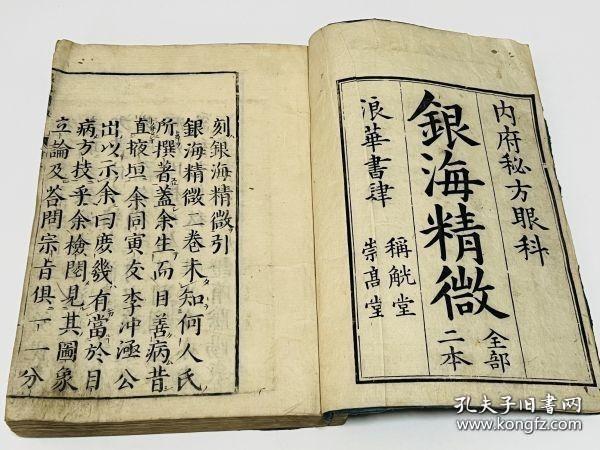 内府秘方眼科
銀海精微
全部
二本
稱觥堂
崇髙堂
浪華書肆
刻銀海精微引
銀海精微二卷未知何人氏
所撰著蓋余生而目善病昔
直掖垣余同寅友李沖涵公
出以示余曰庶幾有當於目
病方技乎余檢閱見其圖象
立論及荅問宗旨俱一一分
孔夫子旧書网